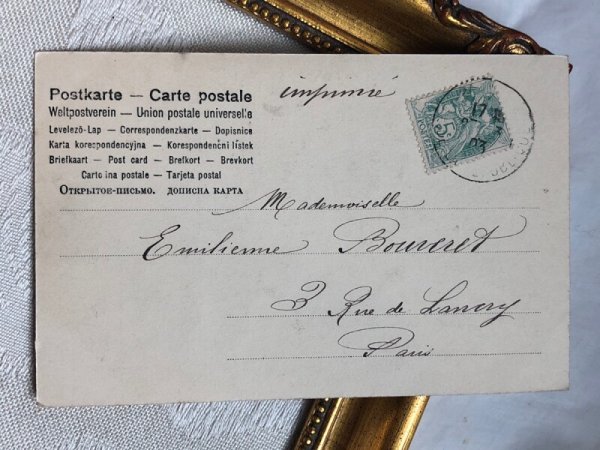 Postkarte — Carte postale
Weltpostverein — Union postale universelle
Levelező-Lap — Correspondenzkarte — Dopisnice
Karta korespondencyjna — Korespondenční listek
Briefkaart — Post card — Brefkort — Brevkort
Cartolina postale — Tarjeta postal
Открытое-письмо. дописна карта
imprimé
5
17
Mademoiselle
Emilienne Bouveret
3 Rue de Lancry
Paris